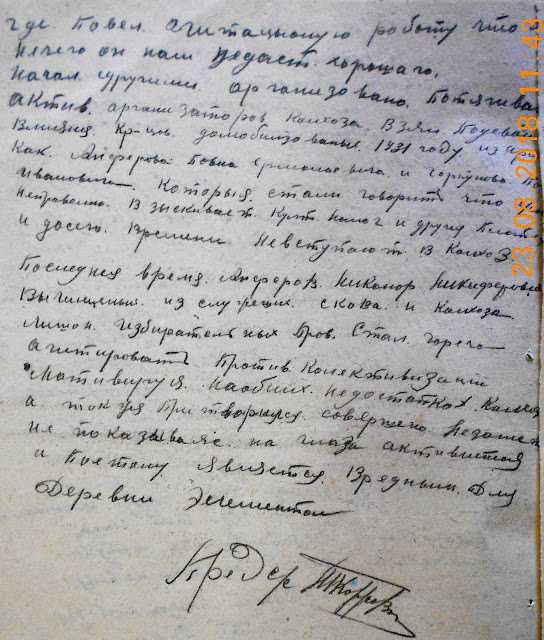 где. Повел. агитацыоную работу что
нечего он нам недаст. хорошаго.
начал. сдругими. арганизовано. Потягивая
актив. арганизаторов Колхоза. Взяли Подсвое
Влияния Кр-цив. домобилизованых 1931 году из
Как. Анферова Ермолаевича и горчунова
Ивановича. Которыя. стали говорить что
неправелно. Взыскивает. Культ. налог и другия
и досего. Времени. Невступают. В Колхоз
Последнея время. Анферов. Никонор Никиферович
Вычищеный. из слущеших. скова. и Колхоза
лишон. избирательных Прав. Стал. горечо
агитировать Против Колективизации
Мотивируя. наобших. недостатках. Колхоз
а также Притворился. совершено. недоволен
не показываяс. на глаза активистая
и Поетому является. Вредным. Для
Деревни Элементом
Предер
23 08 2018 11 43